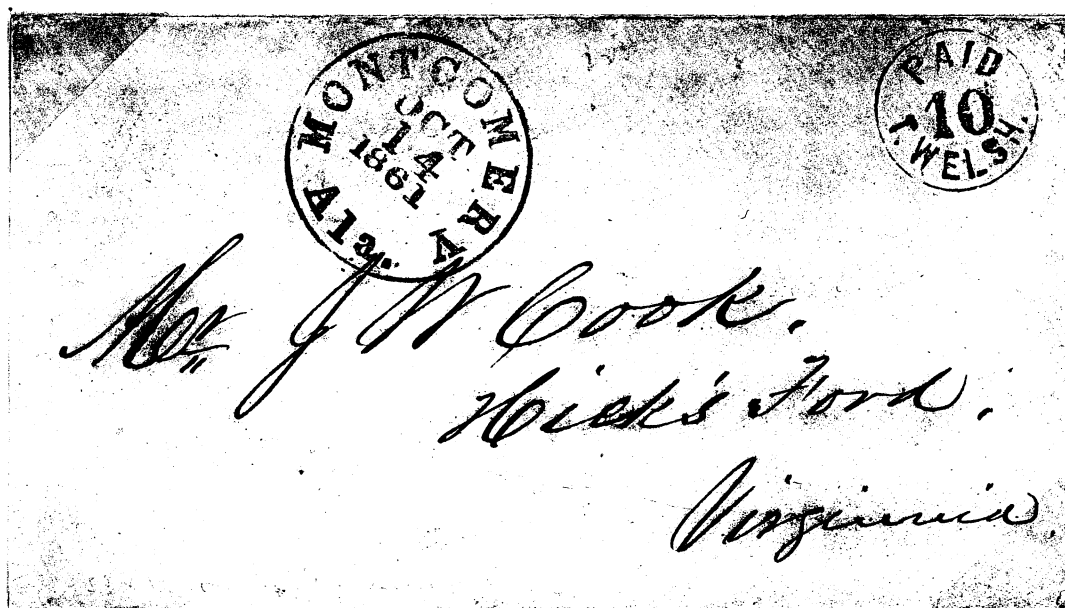 MONTGOMERY Ala.
OCT
14
1861
PAID
10
T. WELSH.
Mr J W Cook.
Hicks's Ford.
Virginnia.